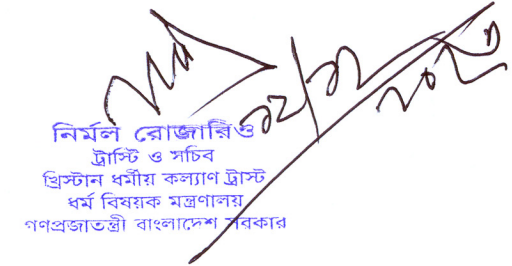 নির্মল রোজারিও
ট্রাস্টি ও সচিব
খ্রিস্টান ধর্মীয় কল্যাণ ট্রাস্ট
ধর্ম বিষয়ক মন্ত্রণালয়
গণপ্রজাতন্ত্রী বাংলাদেশ সরকার